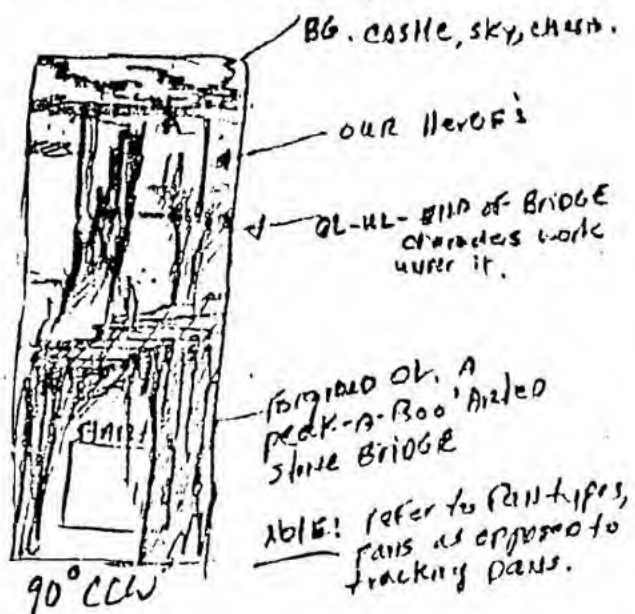 BG. CASTLE, SKY, CHASM.
OUR HEROE'S
OL-UL- END OF BRIDGE
characters work
under it.
OL. A
PEEK-A-BOO
BRIDGE
NOTE! refer to
PANS as opposed to
tracking pans.
90° CCW